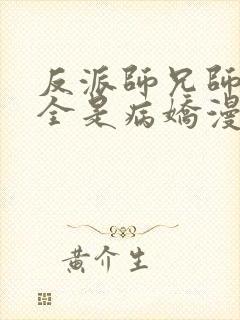 反派師兄師
全是病嬌漫
黃介生